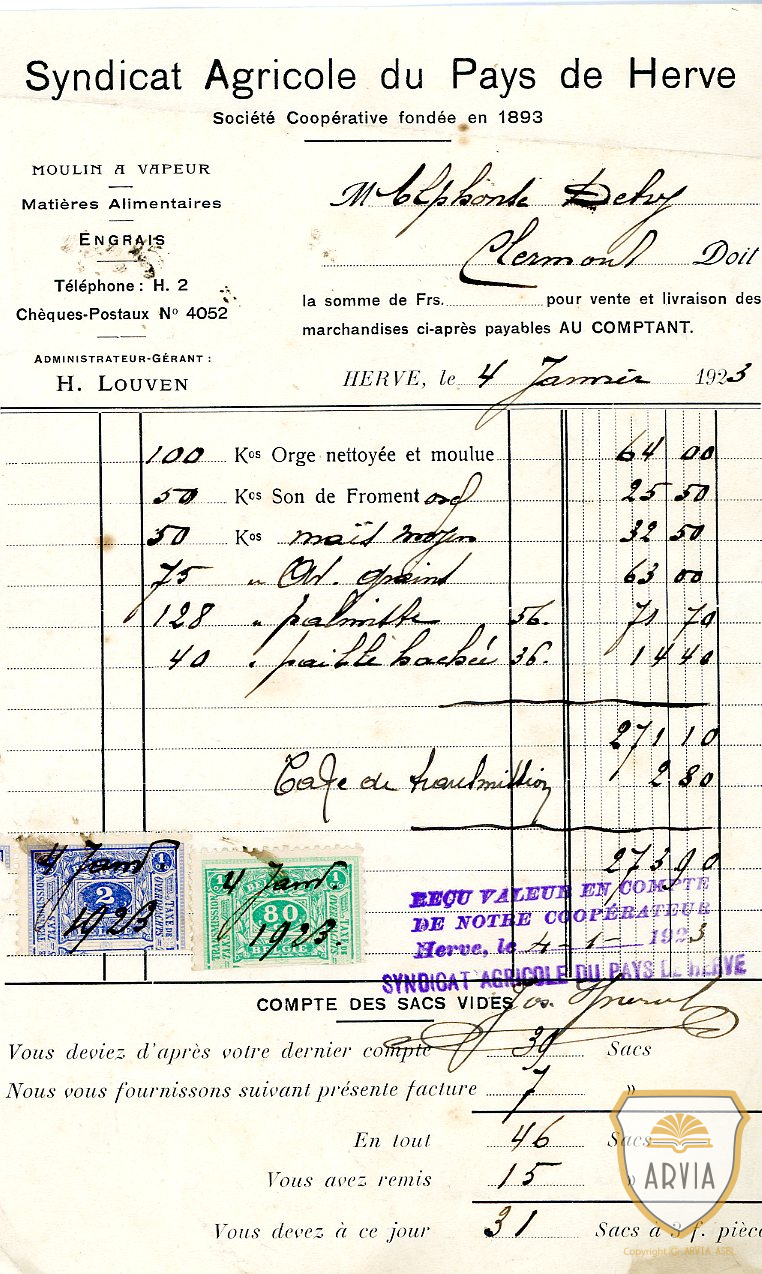 Syndicat Agricole du Pays de Herve
Société Coopérative fondée en 1893
MOULIN A VAPEUR
Matières Alimentaires
ENGRAIS
Téléphone : H. 2
Chèques-Postaux Nº 4052
ADMINISTRATEUR-GÉRANT :
H. LOUVEN
M Alphonse
Clermont Doit
la somme de Frs. pour vente et livraison des
marchandises ci-après payables AU COMPTANT.
HERVE, le 4 Janvier 1923
100 Kos Orge nettoyée et moulue 64 00
50 Kos Son de Froment 25 50
50 Kos maïs moyen 32 50
75 " Av. 63 00
128 " palmiste 56. 71 70
40 " paille hachée 36. 14 40
271 10
Taxe de transmission 2 80
273 90
4 Janv. 1923
2
4 Janv. 1923.
80
BELGIQUE
REÇU VALEUR EN COMPTE
DE NOTRE COOPÉRATEUR
Herve, le 4-1- 1923
SYNDICAT AGRICOLE DU PAYS DE HERVE
Jos.
COMPTE DES SACS VIDES
Vous deviez d'après votre dernier compte 39 Sacs
Nous vous fournissons suivant présente facture 7 »
En tout 46 Sacs
Vous avez remis 15 »
Vous devez à ce jour 31 Sacs à 3 f. pièce
ARVIA
Copyright © ARVIA ASBL